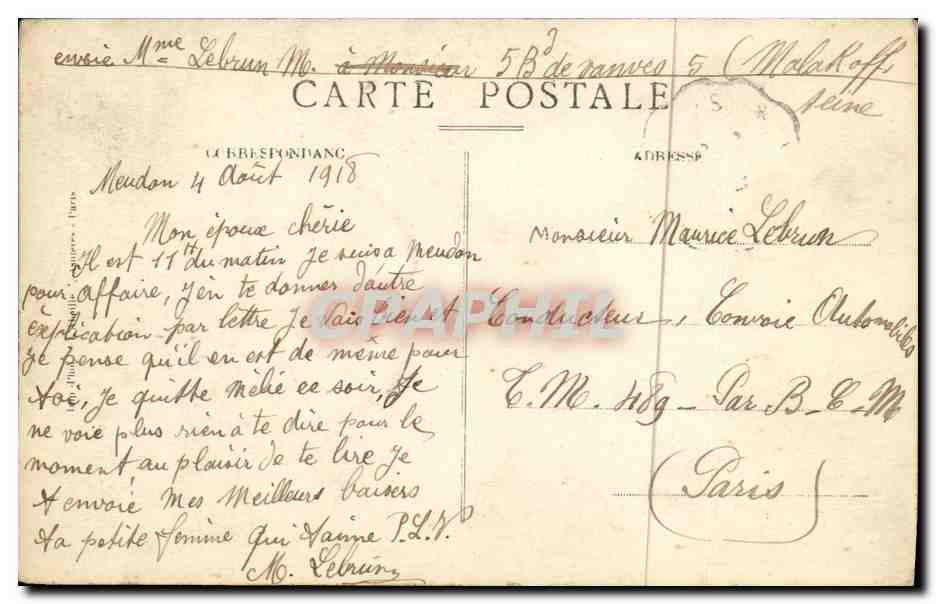 envoie Mme Lebrun M. à Monsieur 5 Bd de vanves 5 (Malakoff,
seine
CARTE POSTALE
CORRESPONDANC
ADRESSE
Meudon 4 Août 1918
Mon époux chérie
Il est 11h du matin je suis a Meudon
pour affaire, j'en te donner d'autre
éxplication par lettre je vais bien et
je pense qu'il en est de même pour
toi, je quitte mélie ce soir, Je
ne voie plus rien à te dire pour le
moment au plaisir de te lire je
t envoie mes meilleurs baisers
ta petite femme qui t'aime P.L.V.
M. Lebrun
Monsieur Maurice Lebrun
Conducteur, Convoie Automobiles
T. M. 489 - Par B-C-M
(Paris)